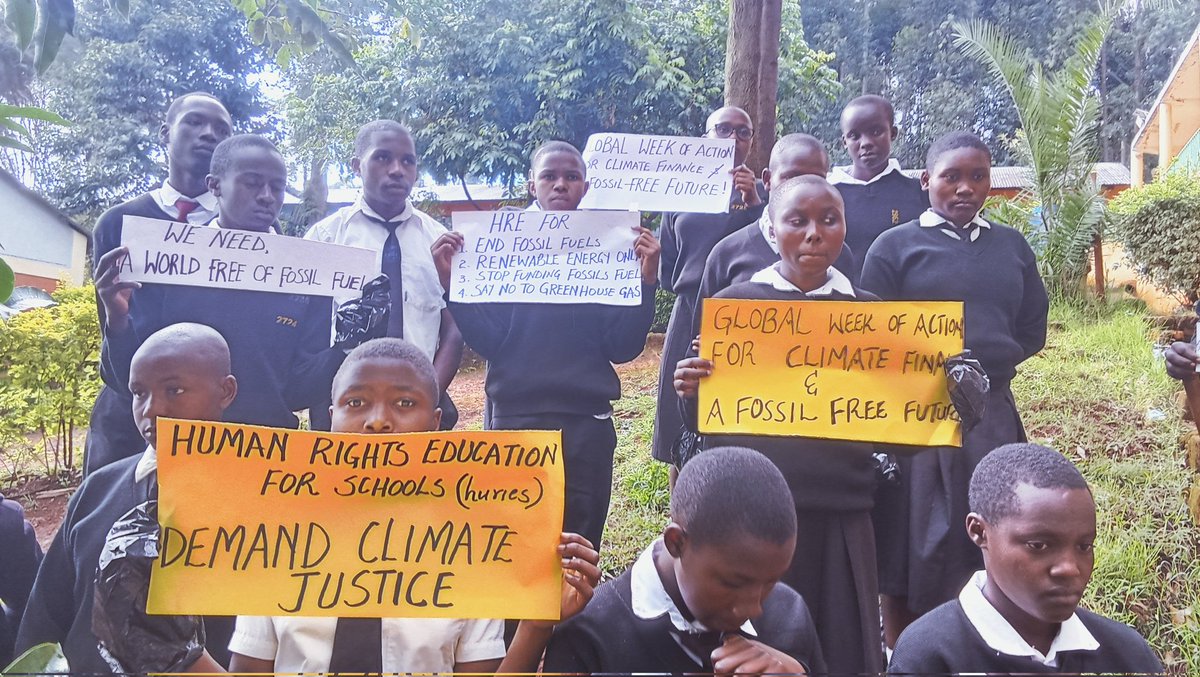 OBAL WEEK OF ACTION
OR CLIMATE FINANCE &
FOSSIL-FREE FUTURE!
WE NEED,
A WORLD FREE OF FOSSIL FUEL
2724
HRE FOR
END FOSSIL FUELS
2. RENEWABLE ENERGY ONLY
3. STOP FUNDING FOSSILS FUEL
4. SAY NO TO GREENHOUSE GAS
GLOBAL WEEK OF ACTION
FOR CLIMATE FINA
&
A FOSSIL FREE FUTU
HUMAN RIGHTS EDUCATION
FOR SCHOOLS (huries)
DEMAND CLIMATE
JUSTICE